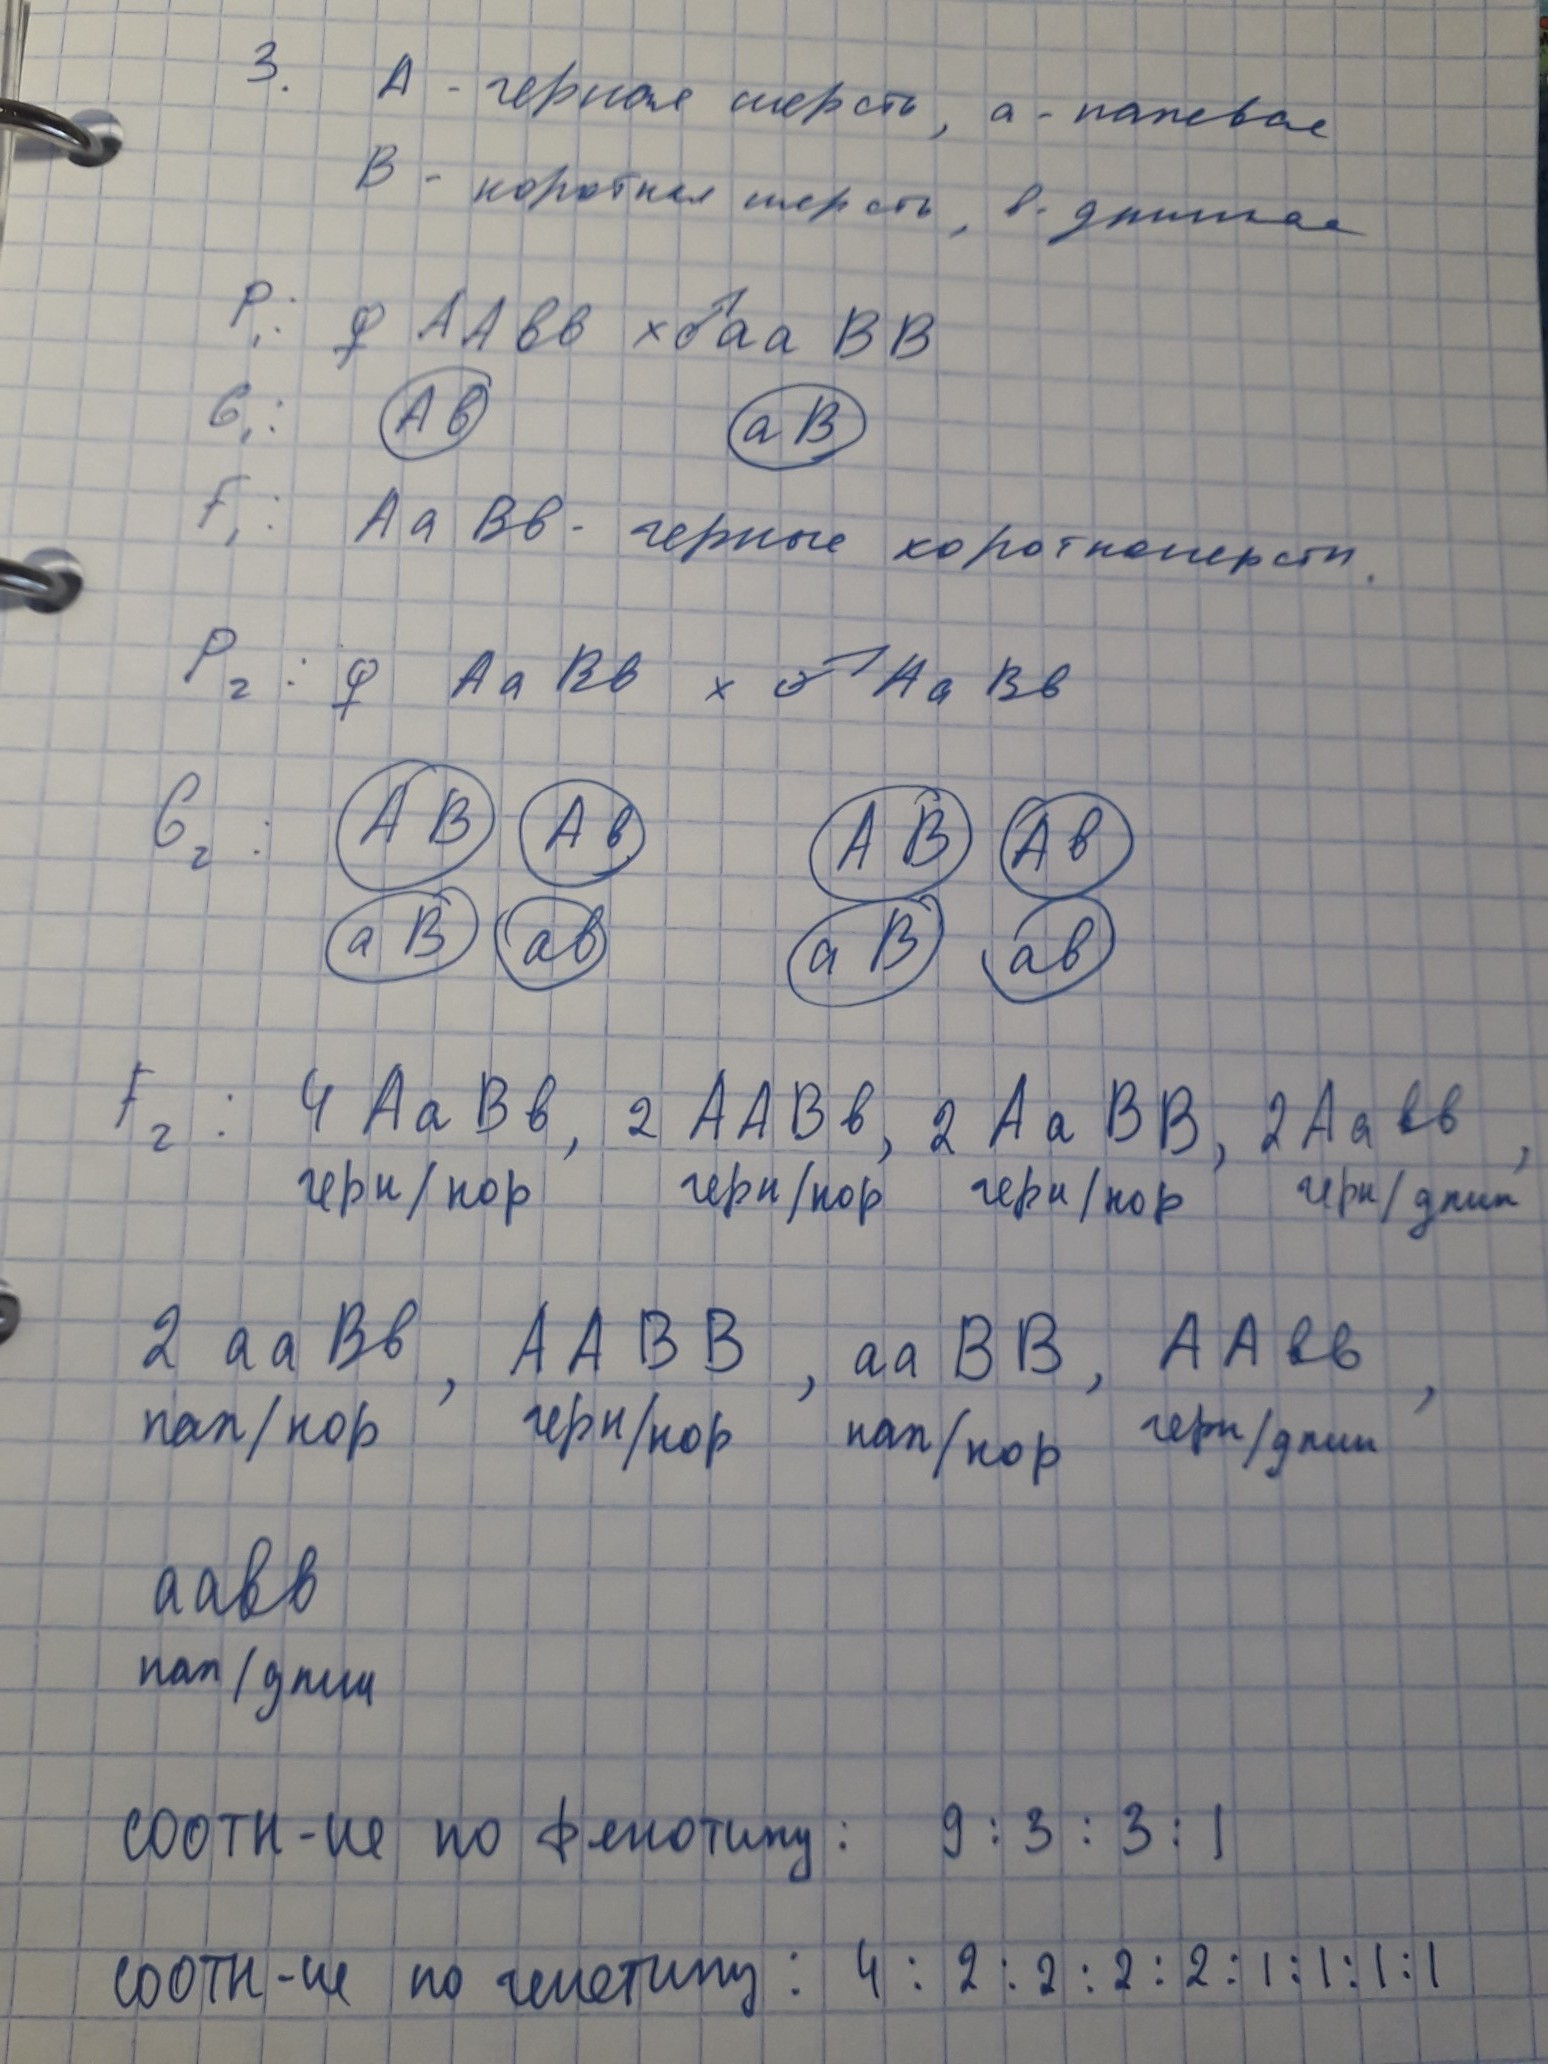 3. А - черная шерсть, а - палевая
В - короткая шерсть, в - длинная
P₁: ♀ ААвв × ♂ ааВВ
G₁: Ав аВ
F₁: АаВв - черные короткошерстн.
P₂: ♀ АаВв × ♂ АаВв
G₂: АВ Ав АВ Ав
аВ ав аВ ав
F₂: 4 АаВв, 2 ААВв, 2 АаВВ, 2 Аавв,
черн/кор черн/кор черн/кор черн/длин
2 ааВв, ААВВ, ааВВ, ААвв,
пал/кор черн/кор пал/кор черн/длин
аавв
пал/длин
соотн-ие по фенотипу: 9 : 3 : 3 : 1
соотн-ие по генотипу: 4 : 2 : 2 : 2 : 2 : 1 : 1 : 1 : 1